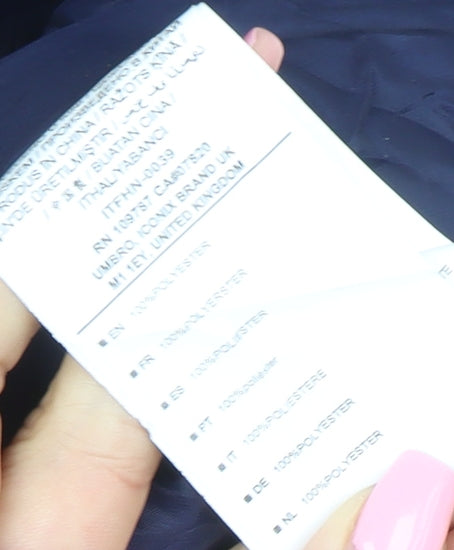 PRODUS IN CHINA / RAŽOTS ĶĪNĀ /
/ BUATAN CINA /
ITHALYABANCI
ITFHN-0039
RN 109787 CA#07820
UMBRO, ICONIX BRAND UK
M1 1EY, UNITED KINGDOM
EN 100%POLYESTER
FR 100%POLYERSTER
ES 100%POLIÉSTER
PT 100%poliéster
IT 100%POLIESTERE
DE 100%POLYESTER
NL 100%POLYESTER